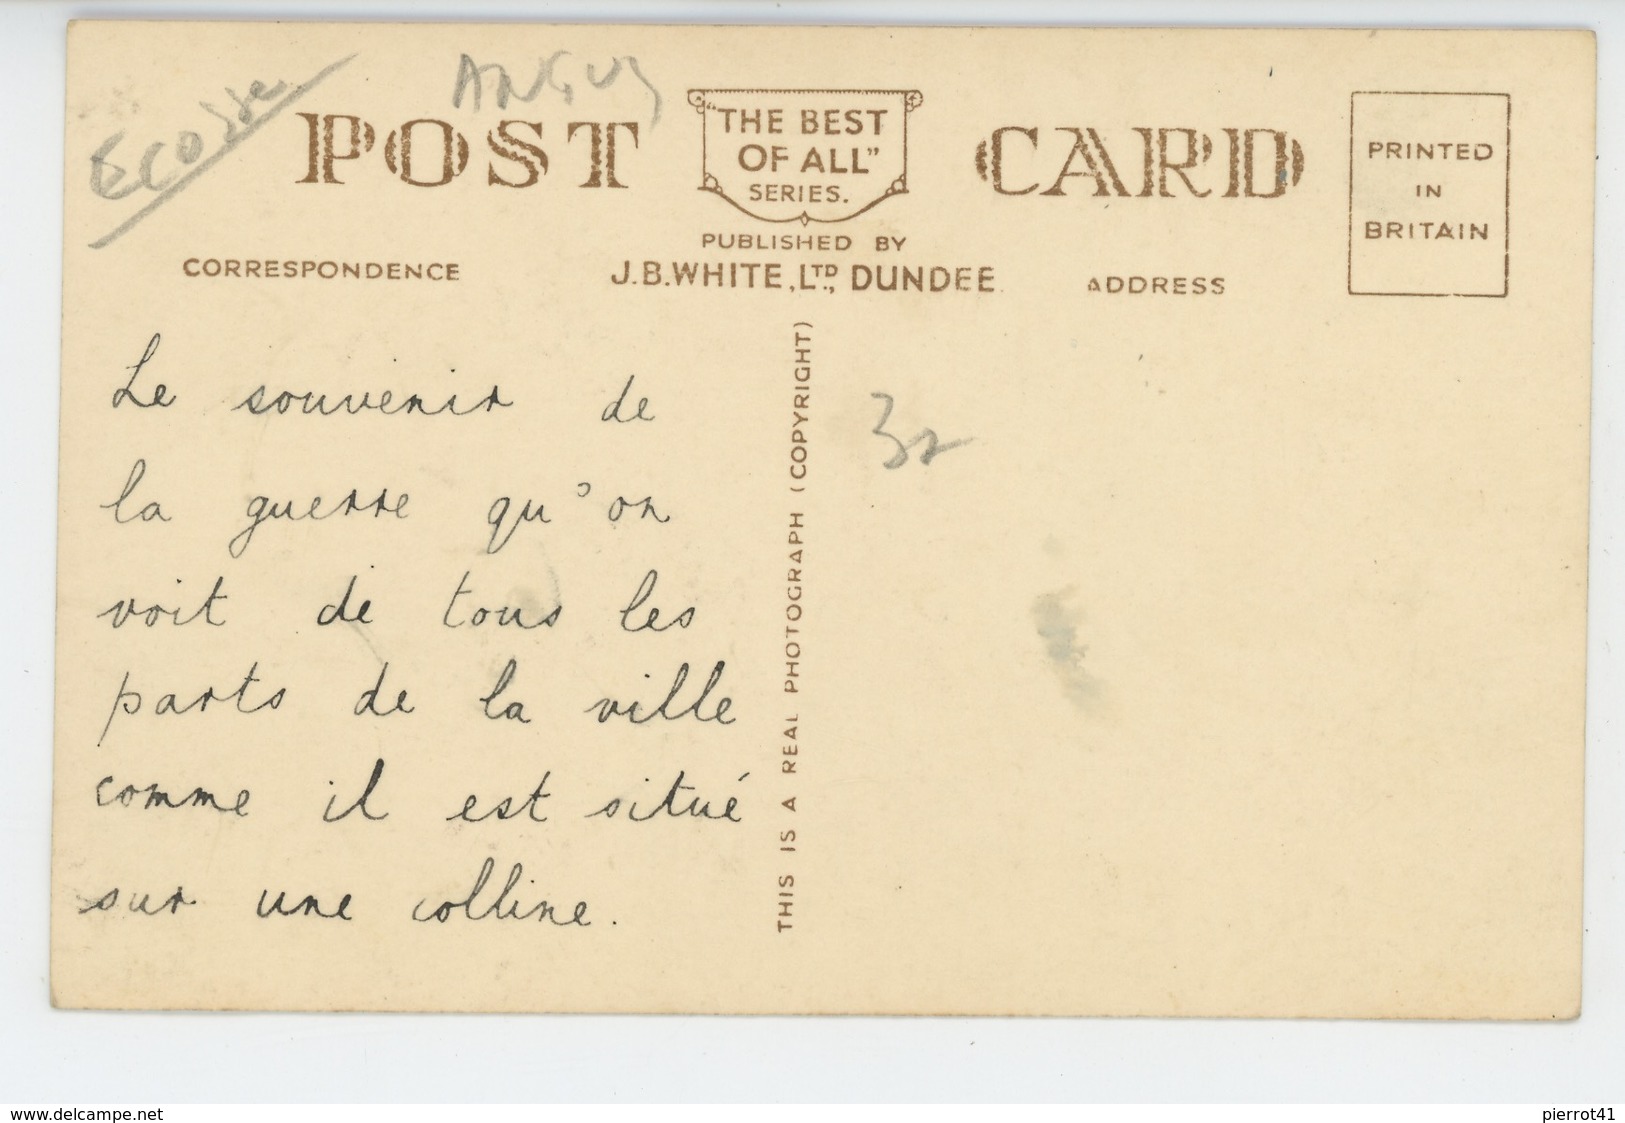 Ecosse
ANGUS
POST CARD
"THE BEST
OF ALL"
SERIES.
PUBLISHED BY
J.B.WHITE, LTD., DUNDEE.
CORRESPONDENCE
ADDRESS
PRINTED
IN
BRITAIN
Le souvenir de
la guerre qu'on
voit de tous les
parts de la ville
comme il est situé
sur une colline.
THIS IS A REAL PHOTOGRAPH (COPYRIGHT)
www.delcampe.net
pierrot41